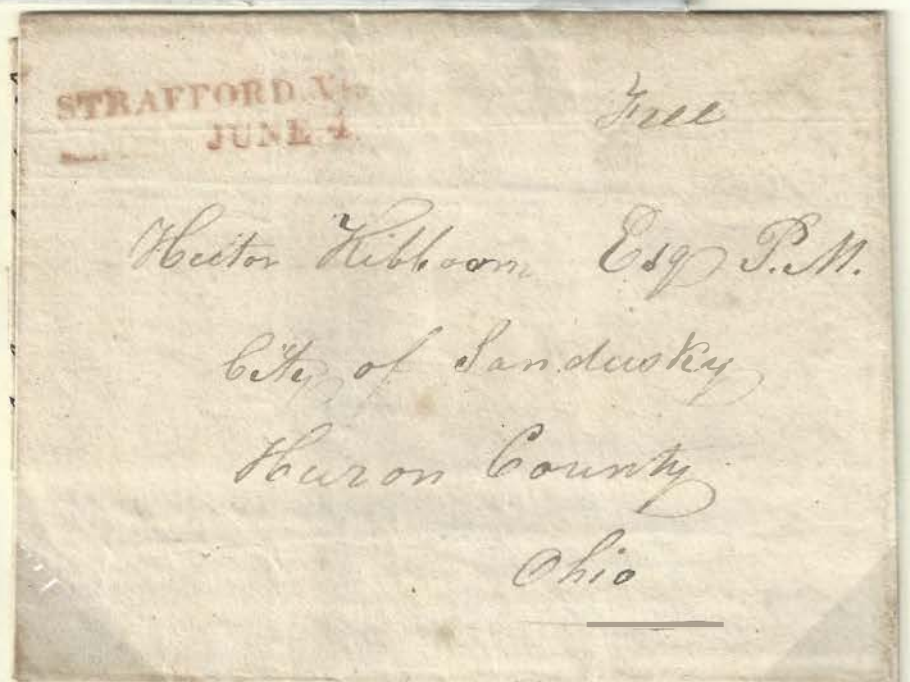 STRAFFORD Vt.
JUNE 4
Free
Hector Kibborn Esq P.M.
City of Sandusky
Huron County
Ohio